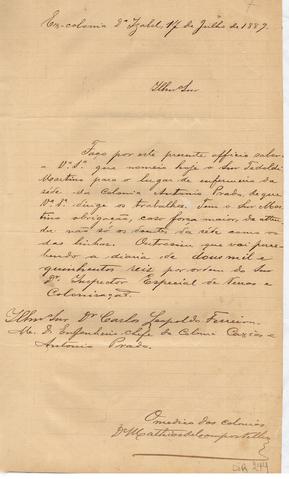 Ex-colonia Dª Izabel, 17 de Julho de 1887.
Illmº Snr
Faço por este presente officio saber
a V.ª S.ª que nomeis hoje o Snr Tedaldi
Martino para o lugar de enfermeiro da
séde da Colonia Antonio Prado, de que
V.ª S.ª dirige os trabalhos. Tem o Snr Mar-
tino obrigação, caso força maior, de atten-
der não só os doentes da séde como os
das linhas. Outrossim que vai perce-
bendo a diaria de dous mil e
quinhentos reis por ordem do Snr
Dr. Inspector Especial de Terras e
Colonisação.
Illmº Snr Dr Carlos Leopoldo Ferreira
M. D. Engenheiro chefe da Colonia Caxias e
Antonio Prado.
O medico das colonias
Dr Mathias de Campos Velho
244